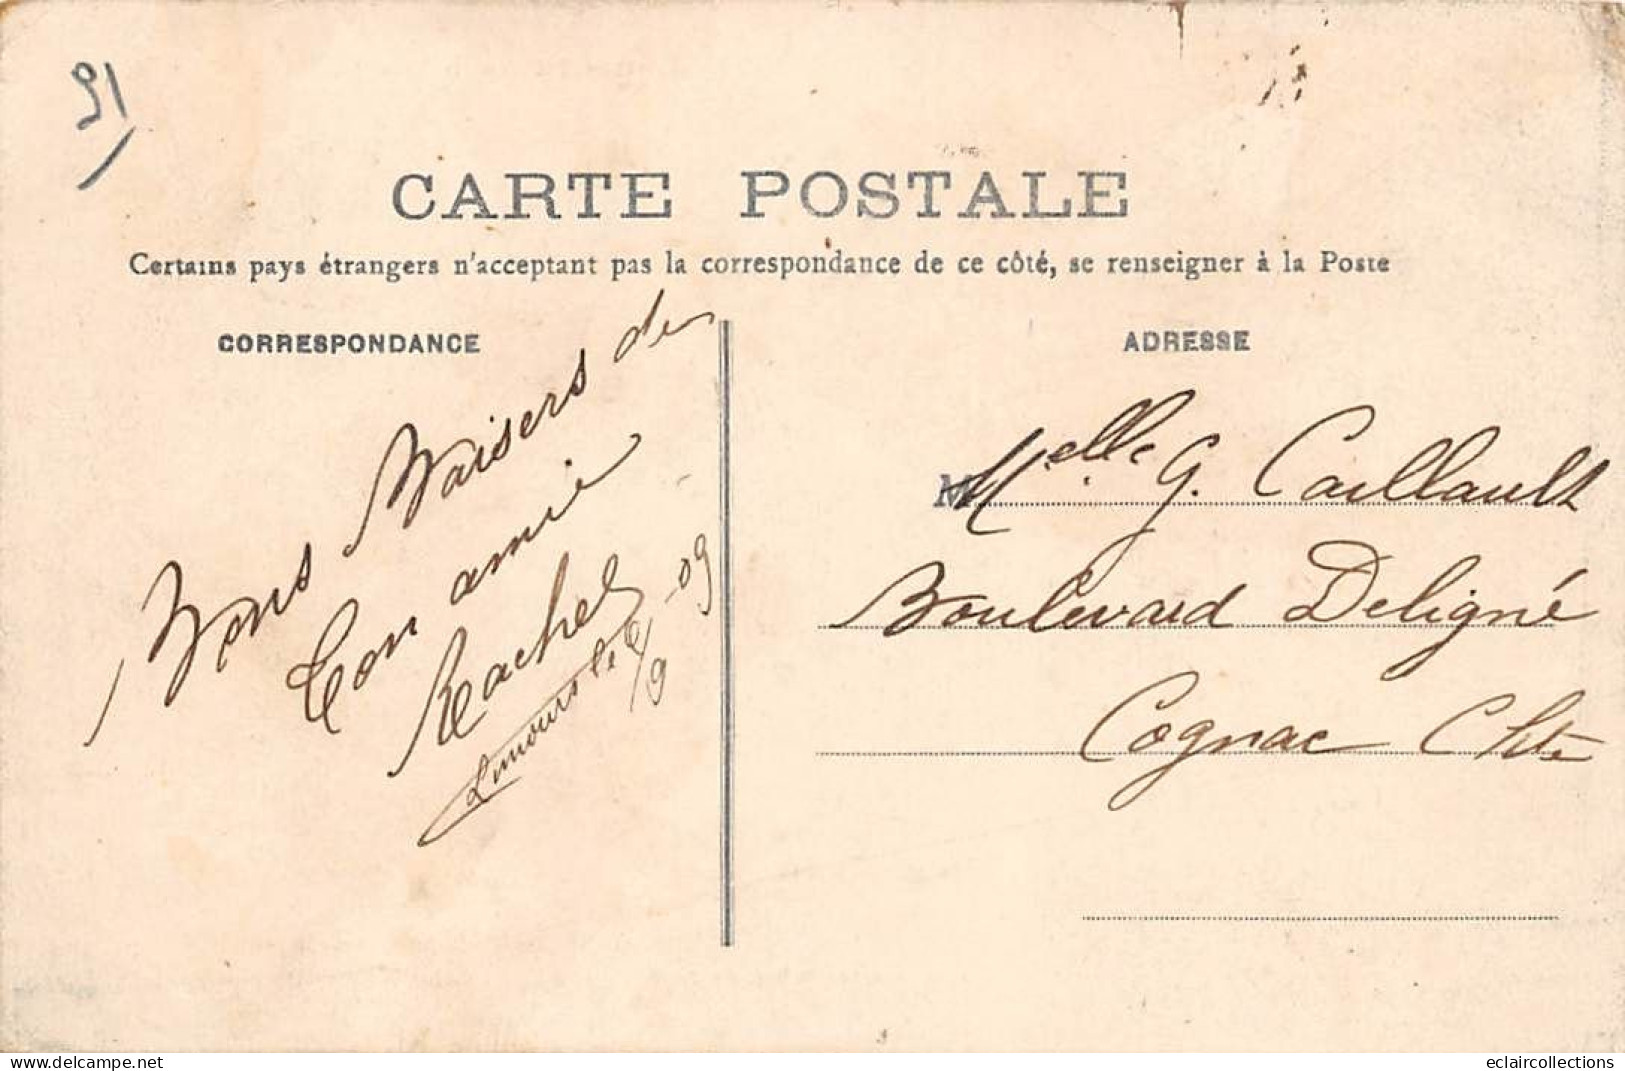 91
CARTE POSTALE
Certains pays étrangers n'acceptant pas la correspondance de ce côté, se renseigner à la Poste
CORRESPONDANCE
Bons Baisers de
ton amie
Rachel
Limours le 6/9-09
ADRESSE
M Melle G. Caillault
Boulevard Deligné
Cognac Chte
www.delcampe.net
eclaircollections